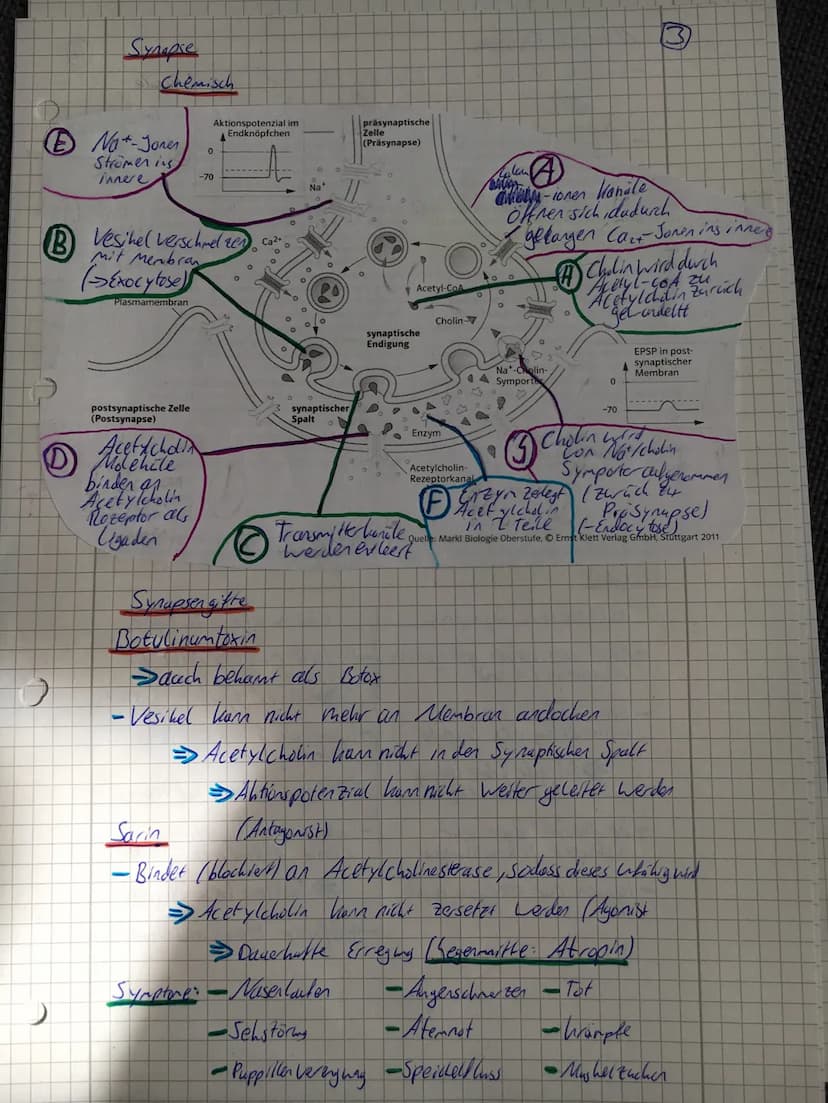 Synapse
3
Chemisch
E
Na+-Ionen
Strömen ins
innere
Aktionspotenzial im
Endknöpfchen
0
-70
Na+
präsynaptische
Zelle
(Präsynapse)
A
-ionen Kanäle
öffnen sich dadurch
gelangen Ca2+-Ionen ins innere
B
Vesikel verschmelzen
mit Membran
(→Exocytose)
Ca2+
Plasmamembran
Acetyl-CoA
Cholin
synaptische
Endigung
H
Cholin wird durch
Acetyl-CoA zu
Acetylcholin zurück
gewandelt
Na+-Cholin-
Symporter
EPSP in post-
synaptischer
Membran
0
-70
postsynaptische Zelle
(Postsynapse)
synaptischer
Spalt
Enzym
Acetylcholin-
Rezeptorkanal
D
Acetylcholin
Moleküle
binden an
Acetylcholin
Rezeptor als
Ligaden
G
Cholin wird
von Na+/cholin
Symporter aufgenommen
(zurück zu
PräSynapse)
(-Endocytose)
F
Enzym zelegt
Acetylcholin
in 2 Teile
C
Transmitterkanäle
werden entleert
Quelle: Markl Biologie Oberstufe, © Ernst Klett Verlag GmbH, Stuttgart 2011
Synapsengifte
Botulinumtoxin
⇒ auch bekannt als Botox
- Vesikel kann nicht mehr an Membran andocken
⇒ Acetylcholin kann nicht in den Synaptischen Spalt
⇒ Aktionspotenzial kann nicht weiter geleitet werden
Sarin (Antagonist)
- Bindet (blockiert) an Acetylcholinesterase, sodass dieses unfähig wird
⇒ Acetylcholin kann nicht zersetzt werden (Agonist
⇒ Dauerhafte Erregung (Gegenmittel: Atropin)
Symptome: - Naselaufen - Augenschmerzen - Tot
- Sehstörung - Atemnot - Krämpfe
- Puppillenverengung - Speichelfluss - Muskelzucken